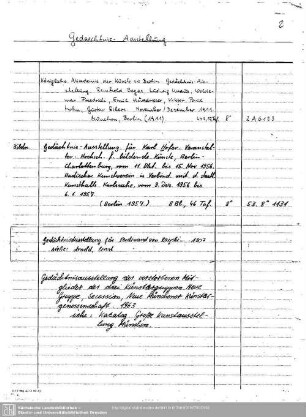 2
Gedächtnis-Ausstellung
Königliche Akademie der Künste zu Berlin. Gedächtnis-Aus-
stellung. Reinhold Begas, Ludwig Knaus,
Friedrich, Ernst Hildebrand, Viktor
Gustav Eilers. November/Dezember 1911.
München, Berlin (1911) 8°
Gedächtnis-Ausstellung für Karl Hofer. Veranstal-
ter: Hochsch. f. bildende Künste, Berlin-
Charlottenburg, vom 11. Okt. bis 15. Nov. 1956.
Badischer Kunstverein in Verbind. mit d. Staatl.
Kunsthalle Karlsruhe, vom 2. Dez. 1956 bis
6. 1. 1957.
(Berlin 1957.) 8 Bl., 46 Taf. 8° 58. 8° 1131
Gedächtnisausstellung für Ferdinand von
siehe: Arnold, Ernst
Gedächtnisausstellung der verstorbenen Mit-
glieder der drei Künstlergruppen Neue
Gruppe, Secession, Neue Münchner Künstler-
genossenschaft. 1963
siehe: Katalog. Große Kunstausstel-
lung München.